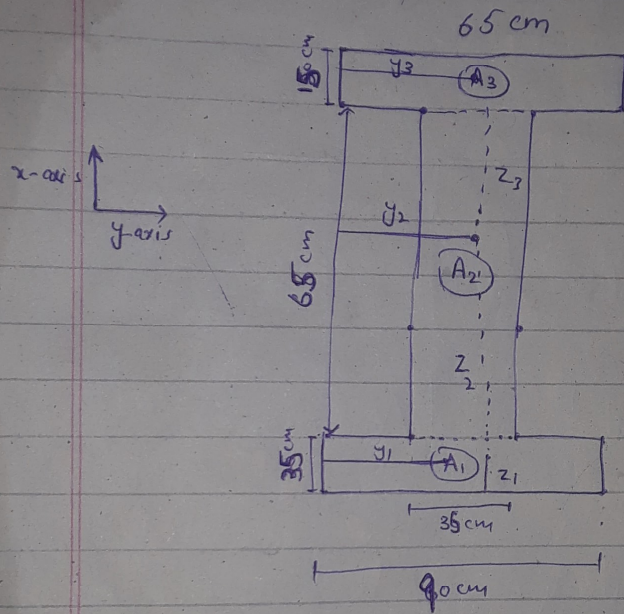 65 cm
cm
y3
A3
x-axis
y axis
z3
y2
65 cm
A2
z2
35 cm
y1
A1
z1
35 cm
90 cm